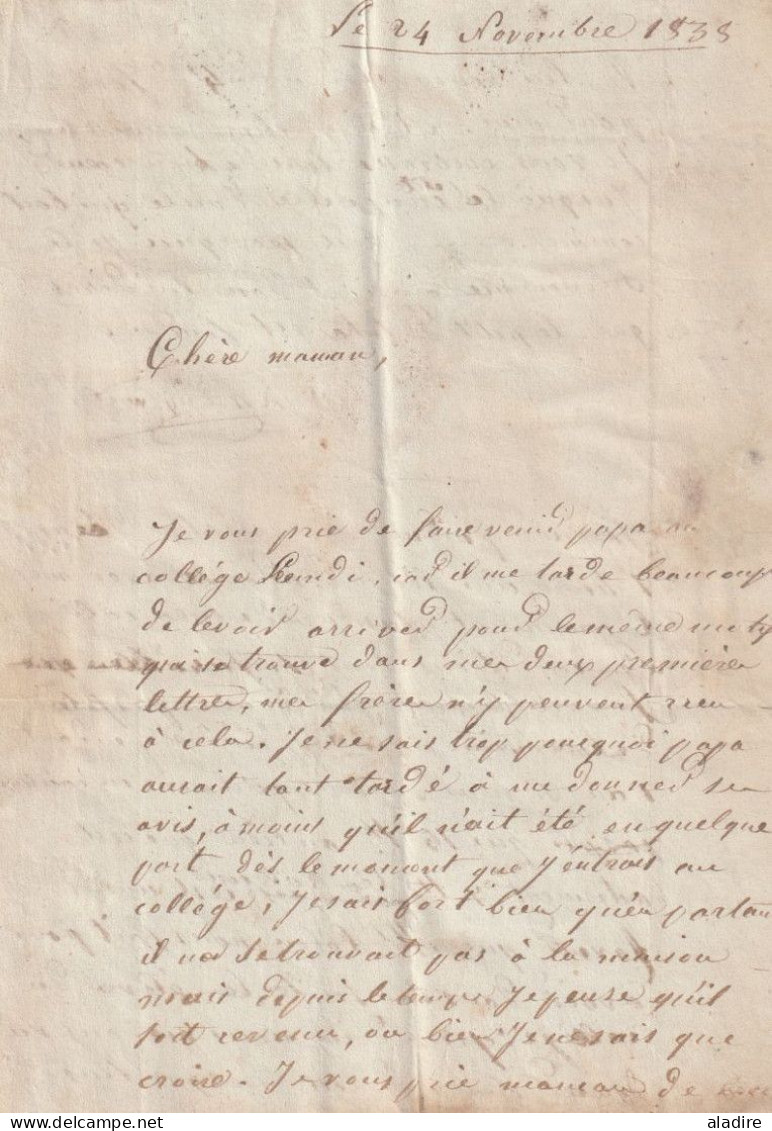 Le 24 Novembre 1838
Chère maman,
Je vous prie de faire venir papa au
collége Lundi, car il me tarde beaucoup
de le voir arriver pour le même motif
qui se trouve dans mes deux premières
lettres, mes frères n'y peuvent rien
à cela. Je ne sais trop pourquoi papa
aurait tant tardé à me donner ses
avis, à moins qu'il n'ait été en quelque
part dès le moment que j'entrais au
collége, Je sais fort bien qu'en partant
il ne se trouvait pas à la maison
mais depuis le temps Je pense qu'il
soit revenu, ou bien Je ne sais que
croire. Je vous prie maman de
aladire